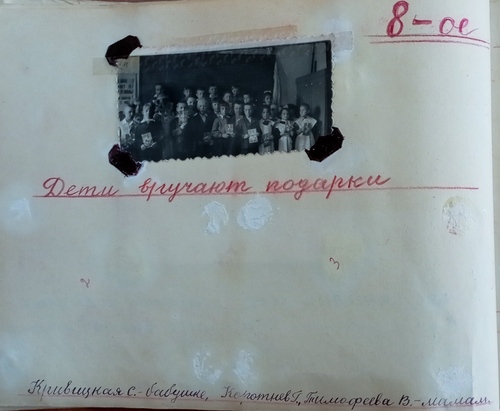 8-ое
Дети вручают подарки
2
3
Кривицкая С.-бабушке, Коротнев Г, Тимофеева В.-мамам.